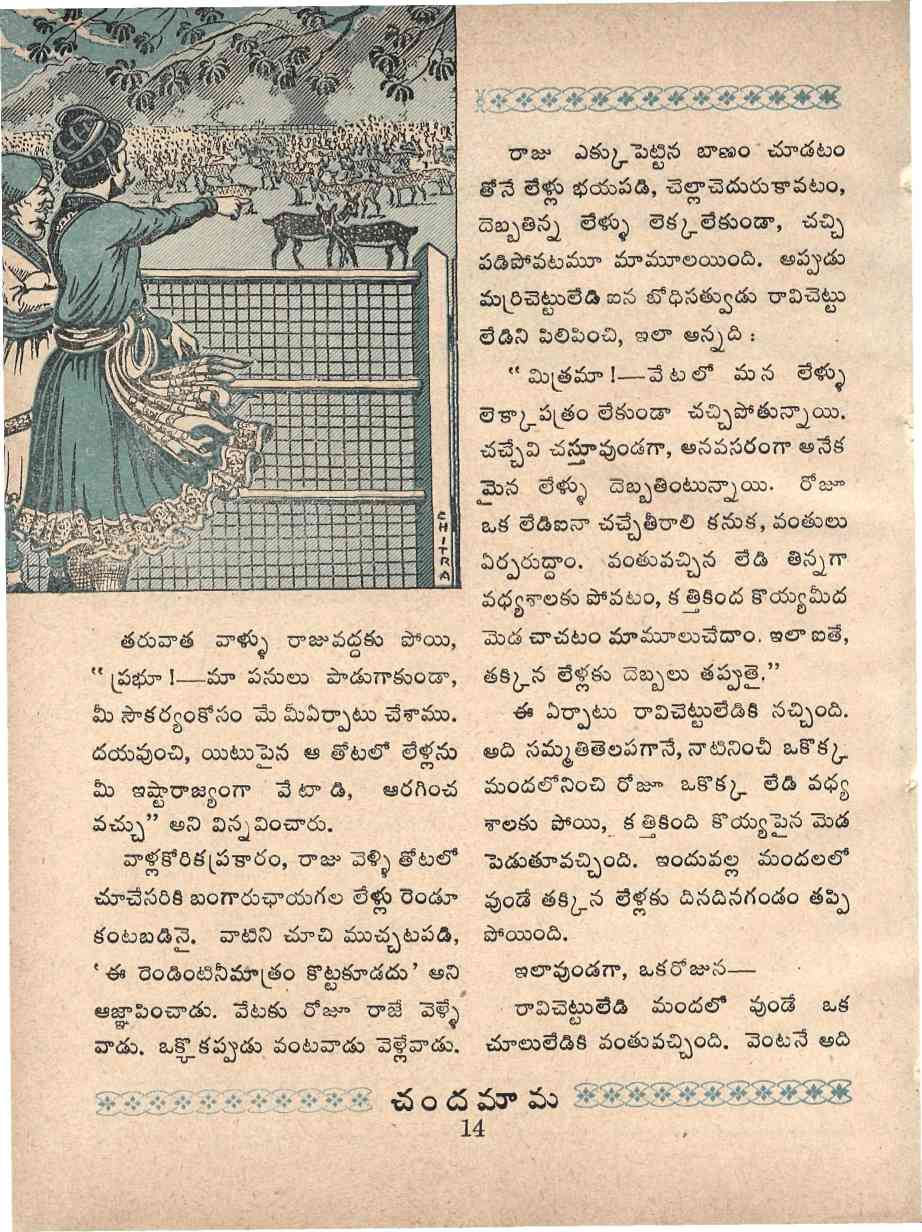 CHITRA
తరువాత వాళ్ళు రాజువద్దకు పోయి,
“ప్రభూ !—మా పనులు పాడుగాకుండా,
మీ సౌకర్యంకోసం మే మీఏర్పాటు చేశాము.
దయవుంచి, యిటుపైన ఆ తోటలో లేళ్లను
మీ ఇష్టారాజ్యంగా వేటాడి, ఆరగించ
వచ్చు” అని విన్నవించారు.
వాళ్లకోరికప్రకారం, రాజు వెళ్ళి తోటలో
చూచేసరికి బంగారుఛాయగల లేళ్లు రెండూ
కంటబడినై. వాటిని చూచి ముచ్చటపడి,
‘ఈ రెండింటినీమాత్రం కొట్టకూడదు’ అని
ఆజ్ఞాపించాడు. వేటకు రోజూ రాజే వెళ్ళే
వాడు. ఒక్కొకప్పుడు వంటవాడు వెళ్లేవాడు.
రాజు ఎక్కుపెట్టిన బాణం చూడటం
తోనే లేళ్లు భయపడి, చెల్లాచెదురుకావటం,
దెబ్బతిన్న లేళ్ళు లెక్కలేకుండా, చచ్చి
పడిపోవటమూ మామూలయింది. అప్పుడు
మర్రిచెట్టులేడి ఐన బోధిసత్వుడు రావిచెట్టు
లేడిని పిలిపించి, ఇలా అన్నది :
“మిత్రమా !—వేటలో మన లేళ్ళు
లెక్కాపత్రం లేకుండా చచ్చిపోతున్నాయి.
చచ్చేవి చస్తూవుండగా, అనవసరంగా అనేక
మైన లేళ్ళు దెబ్బతింటున్నాయి. రోజూ
ఒక లేడిఐనా చచ్చేతీరాలి కనుక, వంతులు
ఏర్పరుద్దాం. వంతువచ్చిన లేడి తిన్నగా
వధ్యశాలకు పోవటం, కత్తికింద కొయ్యమీద
మెడ చాచటం మామూలుచేదాం. ఇలా ఐతే,
తక్కిన లేళ్లకు దెబ్బలు తప్పుతై.”
ఈ ఏర్పాటు రావిచెట్టులేడికి నచ్చింది.
అది సమ్మతితెలపగానే, నాటినించీ ఒకొక్క
మందలోనించి రోజూ ఒకొక్క లేడి వధ్య
శాలకు పోయి, కత్తికింది కొయ్యపైన మెడ
పెడుతూవచ్చింది. ఇందువల్ల మందలలో
వుండే తక్కిన లేళ్లకు దినదినగండం తప్పి
పోయింది.
ఇలావుండగా, ఒకరోజున—
రావిచెట్టులేడి మందలో వుండే ఒక
చూలులేడికి వంతువచ్చింది. వెంటనే అది
చందమామ
14